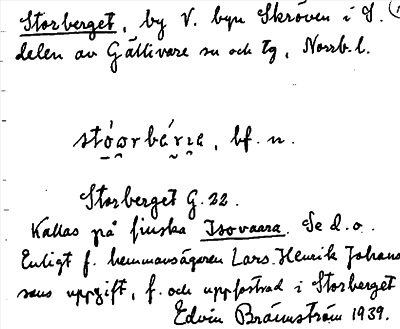 Storberget, by V. byn Skröven i S.
delen av Gällivare sn och tg, Norrb. l.
bf. n.
Storberget G. 22.
Kallas på finska Isovaara. Se d. o.
Enligt f. hemmansägaren Lars-Henrik Johans
sons uppgift, f. och uppfostrad i Storberget
Edvin Brännström 1939.